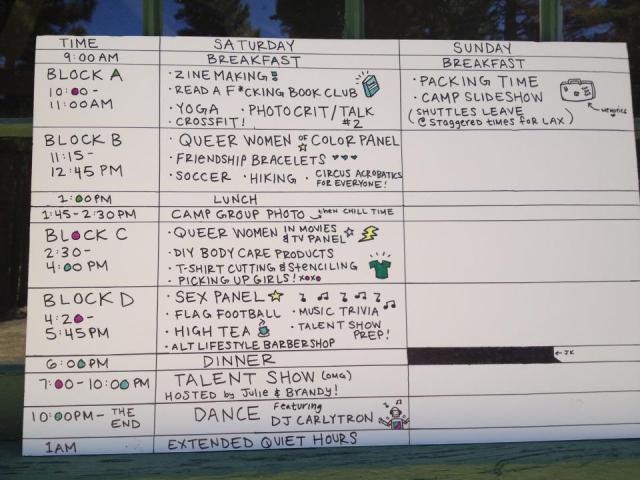 TIME SATURDAY SUNDAY
9:00 AM BREAKFAST BREAKFAST
BLOCK A
10:00-
11:00AM
· ZINE MAKING!
· READ A F*CKING BOOK CLUB
· YOGA · PHOTO CRIT/TALK
· CROSSFIT! #2
· PACKING TIME
· CAMP SLIDESHOW
(SHUTTLES LEAVE
@ Staggered times for LAX)
← memories
BLOCK B
11:15-
12:45 PM
· QUEER WOMEN OF COLOR PANEL
· FRIENDSHIP BRACELETS ♥♥♥
· SOCCER · HIKING · CIRCUS ACROBATICS
FOR EVERYONE!
1:00PM LUNCH
1:45-2:30PM CAMP GROUP PHOTO then CHILL TIME
BLOCK C
2:30-
4:00 PM
· QUEER WOMEN IN MOVIES
& TV PANEL
· DIY BODY CARE PRODUCTS
· T-SHIRT CUTTING & STENCILING
· PICKING UP GIRLS! xoxo
BLOCK D
4:20-
5:45PM
· SEX PANEL
· FLAG FOOTBALL · MUSIC TRIVIA
· HIGH TEA · TALENT SHOW
PREP!
· ALT LIFESTYLE BARBERSHOP
6:00PM DINNER ← JK
7:00-10:00PM TALENT SHOW (OMG)
HOSTED by Julie & BRANDY!
10:00PM- THE
END
DANCE Featuring
DJ CARLYTRON
1AM EXTENDED QUIET HOURS